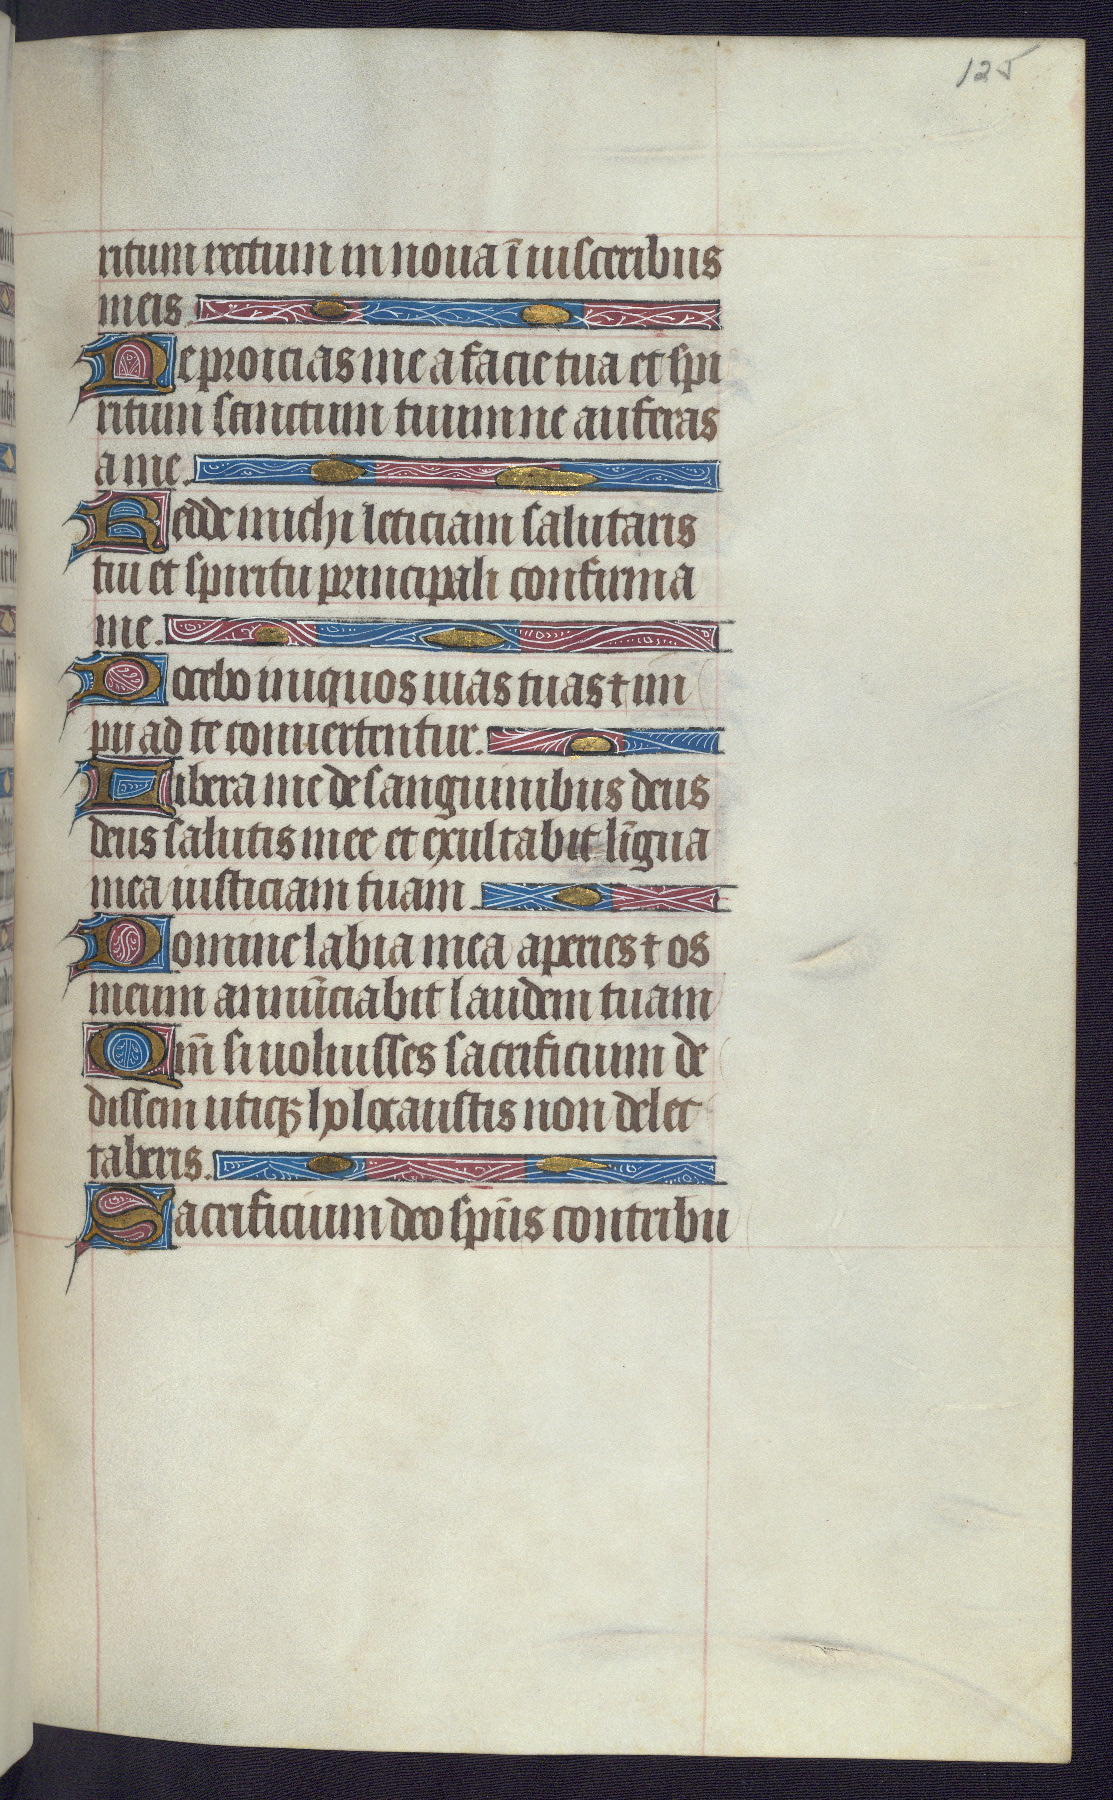 125
ritum rectum in noua ī uisceribus
meis
Ne proicias me a facie tua et spi
ritum sanctum tuum ne auferas
a me.
Redde michi leticiam salutaris
tui et spiritu principali confirma
me.
Docebo iniquos uias tuas ⁊ im
pii ad te conuertentur.
Libera me de sanguinibus deus
deus salutis mee et exultabit līgua
mea iusticiam tuam
Domine labia mea aperies ⁊ os
meum annūciabit laudem tuam
Qm̄ si uoluisses sacrificium de
dissem utiqꝫ holocaustis non delec
taberis.
Sacrificium deo spūs contribu